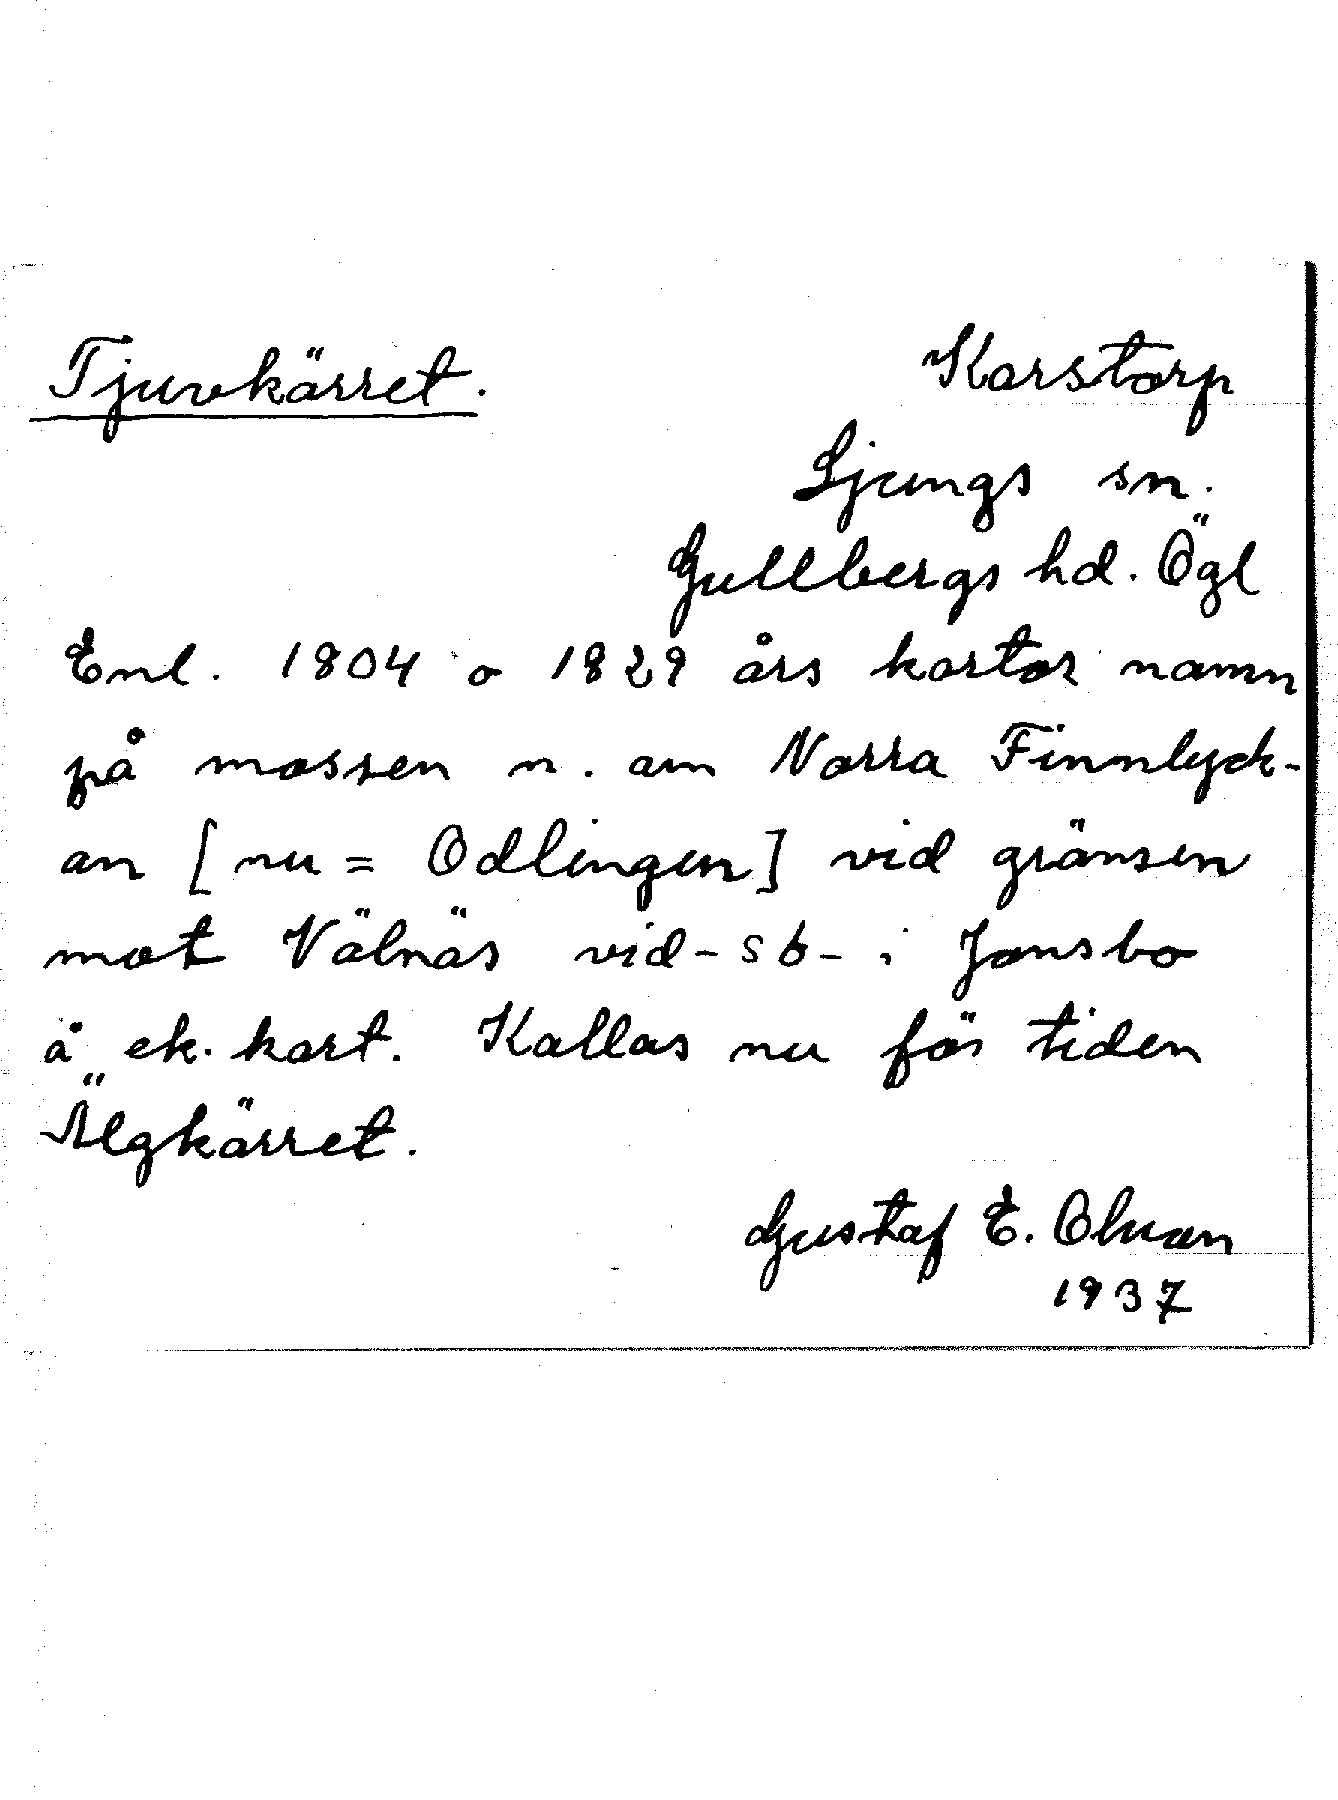 Tjuvkärret.
Karstorp
Ljungs sn.
Gullbergs hd. Ögl
Enl. 1804 o 1829 års kartor namn
på mossen n. om Norra Finnlyck-
an [nu = Odlingen] vid gränsen
mot Välnäs vid -sb- i Jonsbo
å ek. kart. Kallas nu för tiden
Älgkärret.
Gustaf E. Olsson
1937